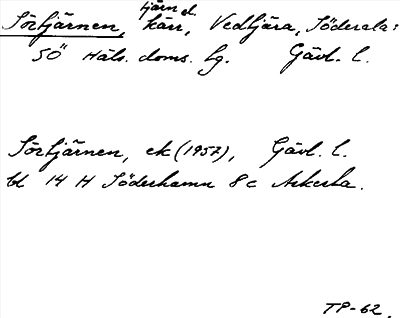 Sörtjärnen, tjärn el. kärr, Vedtjära, Söderala:
SÖ Häls. doms. lg. Gävl. l.
Sörtjärnen, ek (1957), Gävl. l.
bl 14 H Söderhamn 8 c Askesta.
TP-62.